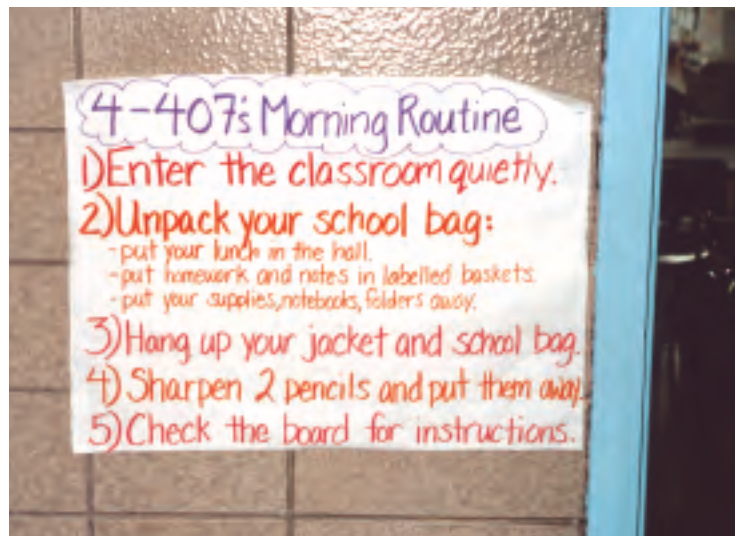 4-407's Morning Routine
1) Enter the classroom quietly.
2) Unpack your school bag:
- put your lunch in the hall.
- put homework and notes in labelled baskets.
- put your supplies, notebooks, folders away.
3) Hang up your jacket and school bag.
4) Sharpen 2 pencils and put them away.
5) Check the board for instructions.